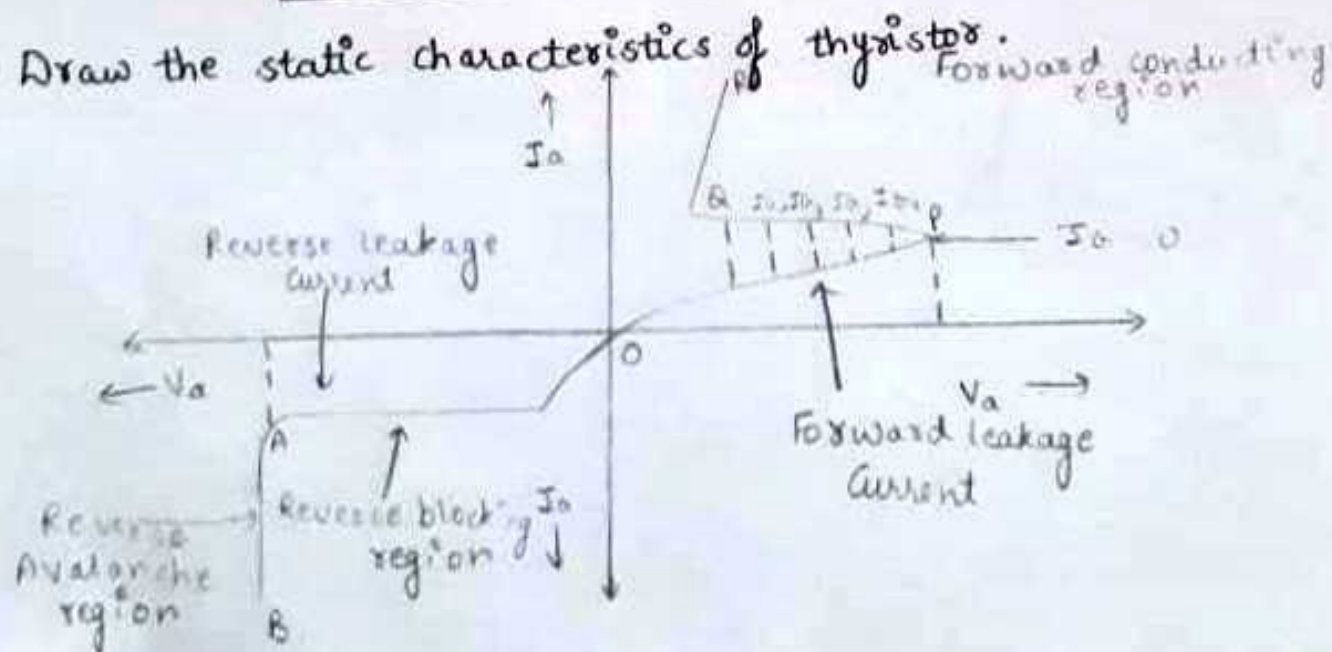 Draw the static characteristics of thyristor.
Forward conducting
region
Ia
R
Q
P
Reverse leakage
Current
O
Va
Va
A
Forward leakage
Current
Reverse
Avalanche
region
Reverse blocking
region
Ia
B